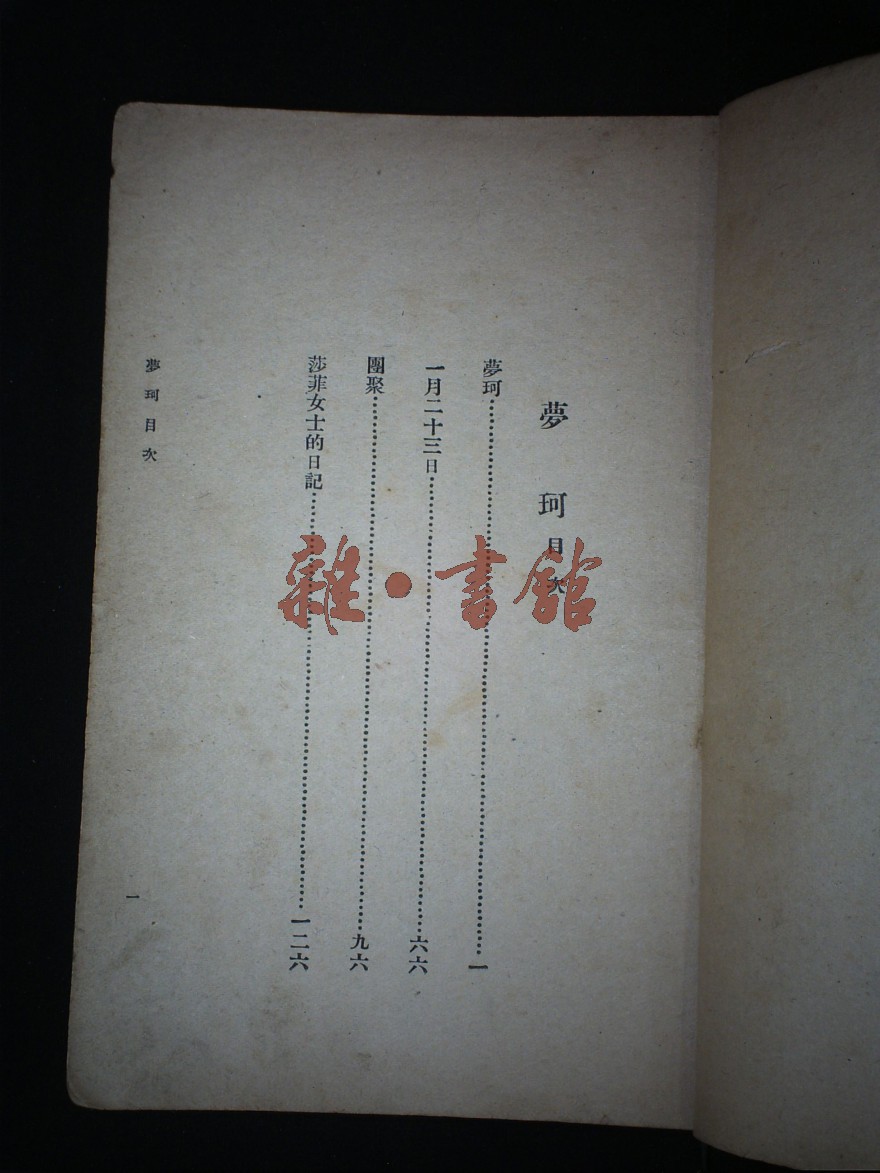 夢珂目次
夢珂……………………一
一月二十三日……………………六六
團聚……………………九六
莎菲女士的日記……………………一二六
夢珂目次
一
雜·書館